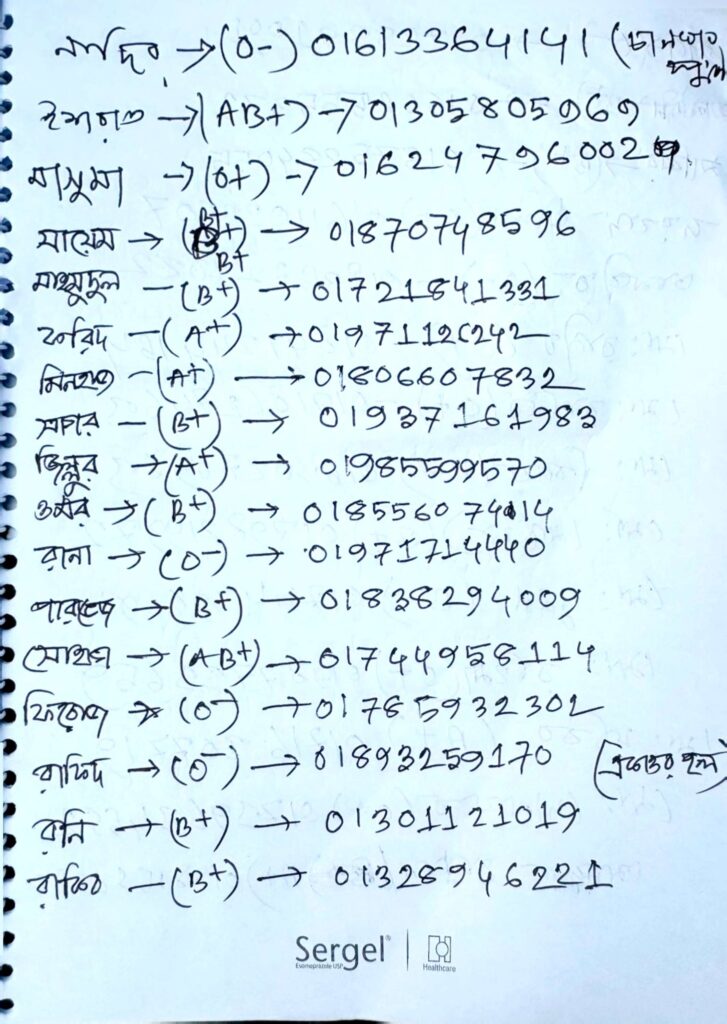 নাদির → (O-) 01613364141 (চানখার পুল)
ইশরাত → (AB+) → 01305805969
মাসুমা → (O+) → 01624796002
সায়েম → (B+) B+ → 01870748596
মাহমুদুল — (B+) → 01721841331
ফরিদ — (A+) → 01971126242
মিনহাজ — (A+) → 01806607832
সাচার — (B+) → 01937161983
জিল্লুর → (A+) → 01985599570
ওমর → (B+) → 01855607414
রানা → (O-) → 01971714440
পারভেজ → (B+) → 01838294009
সোহাগ → (AB+) → 01744958114
ফিরোজ → (O-) → 01785932302
রাশিদ → (O-) → 01893259170 (একুশে হল)
রনি → (B+) → 01301121019
রাকিব — (B+) → 01328946221
Sergel® | Healthcare
Esomeprazole USP